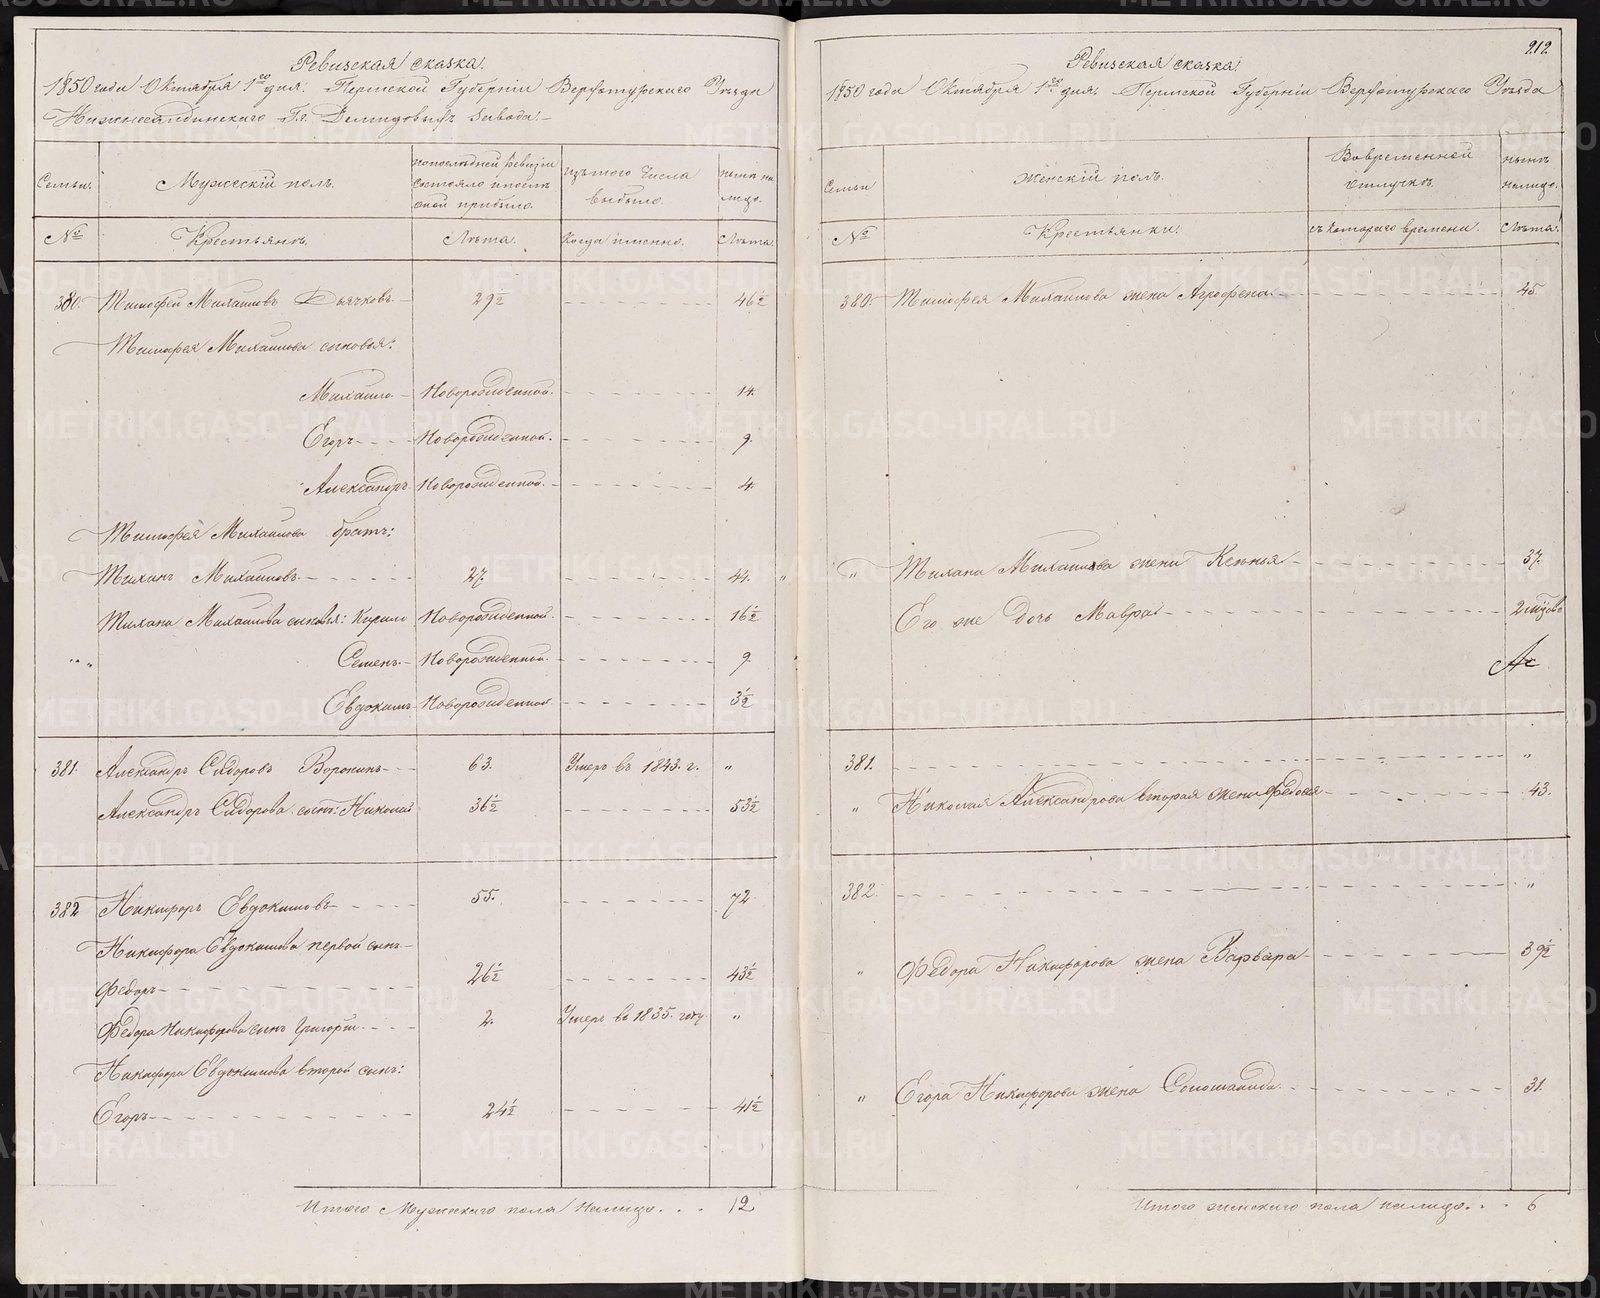 Ревизская сказка.
1850 года Октября 1го дня. Пермской Губернiи Верхотурскаго Уѣзда
Нижнесалдинскаго Гг. Демидовыхъ Завода.
Семьи.
Мужескiй полъ.
По послѣдней ревизiи состояло и послѣ оной прибыло.
Изъ того числа выбыло.
Нынѣ на лицо.
№
Крестьянъ.
Лѣта.
Когда именно.
Лѣта.
380. Тимофей Михаиловъ Дьячковъ 29½ 46½
Тимофея Михаилова сыновья:
Михаило Новорожденной. 14.
Егоръ Новорожденной. 9.
Александръ Новорожденной. 4.
Тимофея Михаилова братъ:
Михаиловъ 27. 44.
Михаилова сыновья: Новорожденной. 16½
" " Семенъ. Новорожденной. 9.
Евдокимъ Новорожденной 3½
381. Александръ Сидоровъ Воронинъ 63. Умеръ въ 1843. г. "
Александръ Сидорова сынъ: Николай 36½ 53½
382 Никифоръ Евдокимовъ 55. 72
Никифора Евдокимова первой сынъ
Федоръ 26½ 43½
Федора Никифорова сынъ Григорiй 2. Умеръ въ 1835. году "
Никифора Евдокимова второй сынъ:
Егоръ 24½ 41½
Итого Мужескаго пола налицо. . . 12
212.
Ревизская сказка.
1850 года Октября 1го дня. Пермской Губернiи Верхотурскаго Уѣзда
Семьи
Женскiй полъ.
Во временной отлучкѣ.
Нынѣ налицо.
№
Крестьянки.
Съ котораго времени.
Лѣта.
380. Тимофея Михаилова жена Агрофена 45.
" Михаилова жена 37.
Его же дочь Мавра 2
381. "
" Николая Александрова вторая жена Федосья 43.
382. "
" Федора Никифорова жена Варвара 39½
" Егора Никифорова жена 31.
Итого женскаго пола налицо. . . 6
METRIKI.GASO-URAL.RU